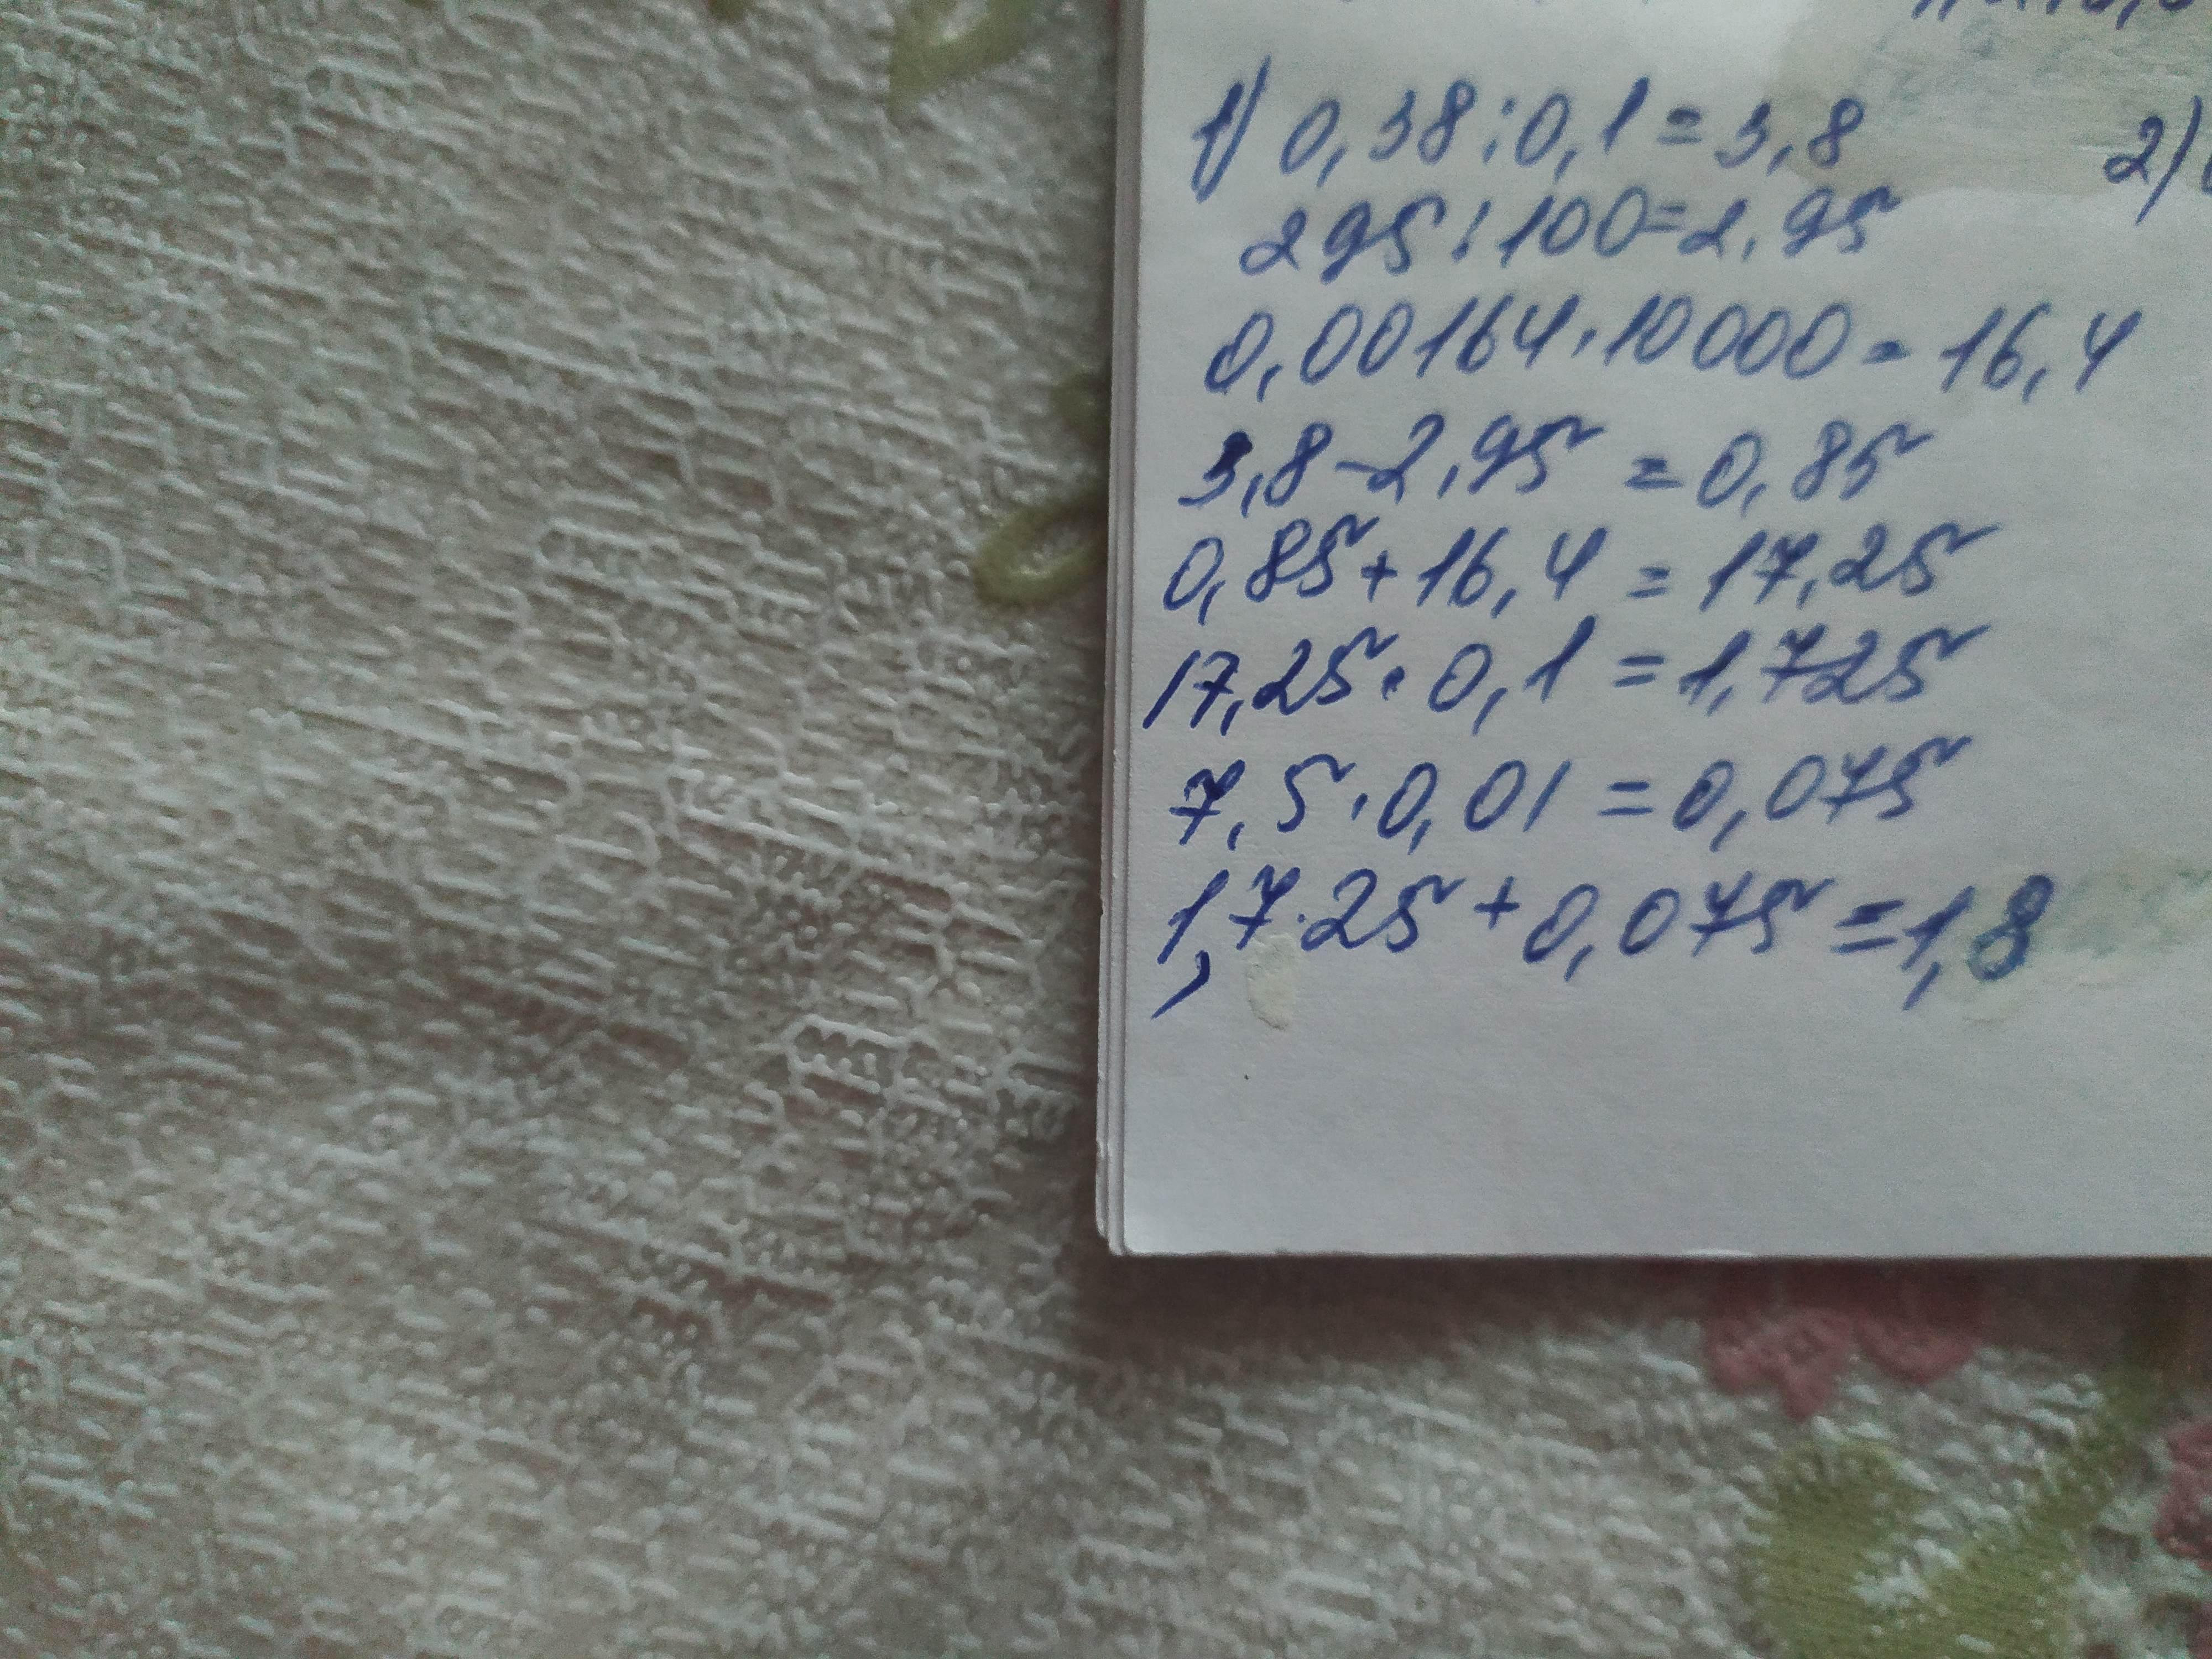 1) 0,38:0,1=3,8
2)
295:100=2,95
0,00164·10000=16,4
3,8-2,95=0,85
0,85+16,4=17,25
17,25·0,1=1,725
7,5·0,01=0,075
1,725+0,075=1,8